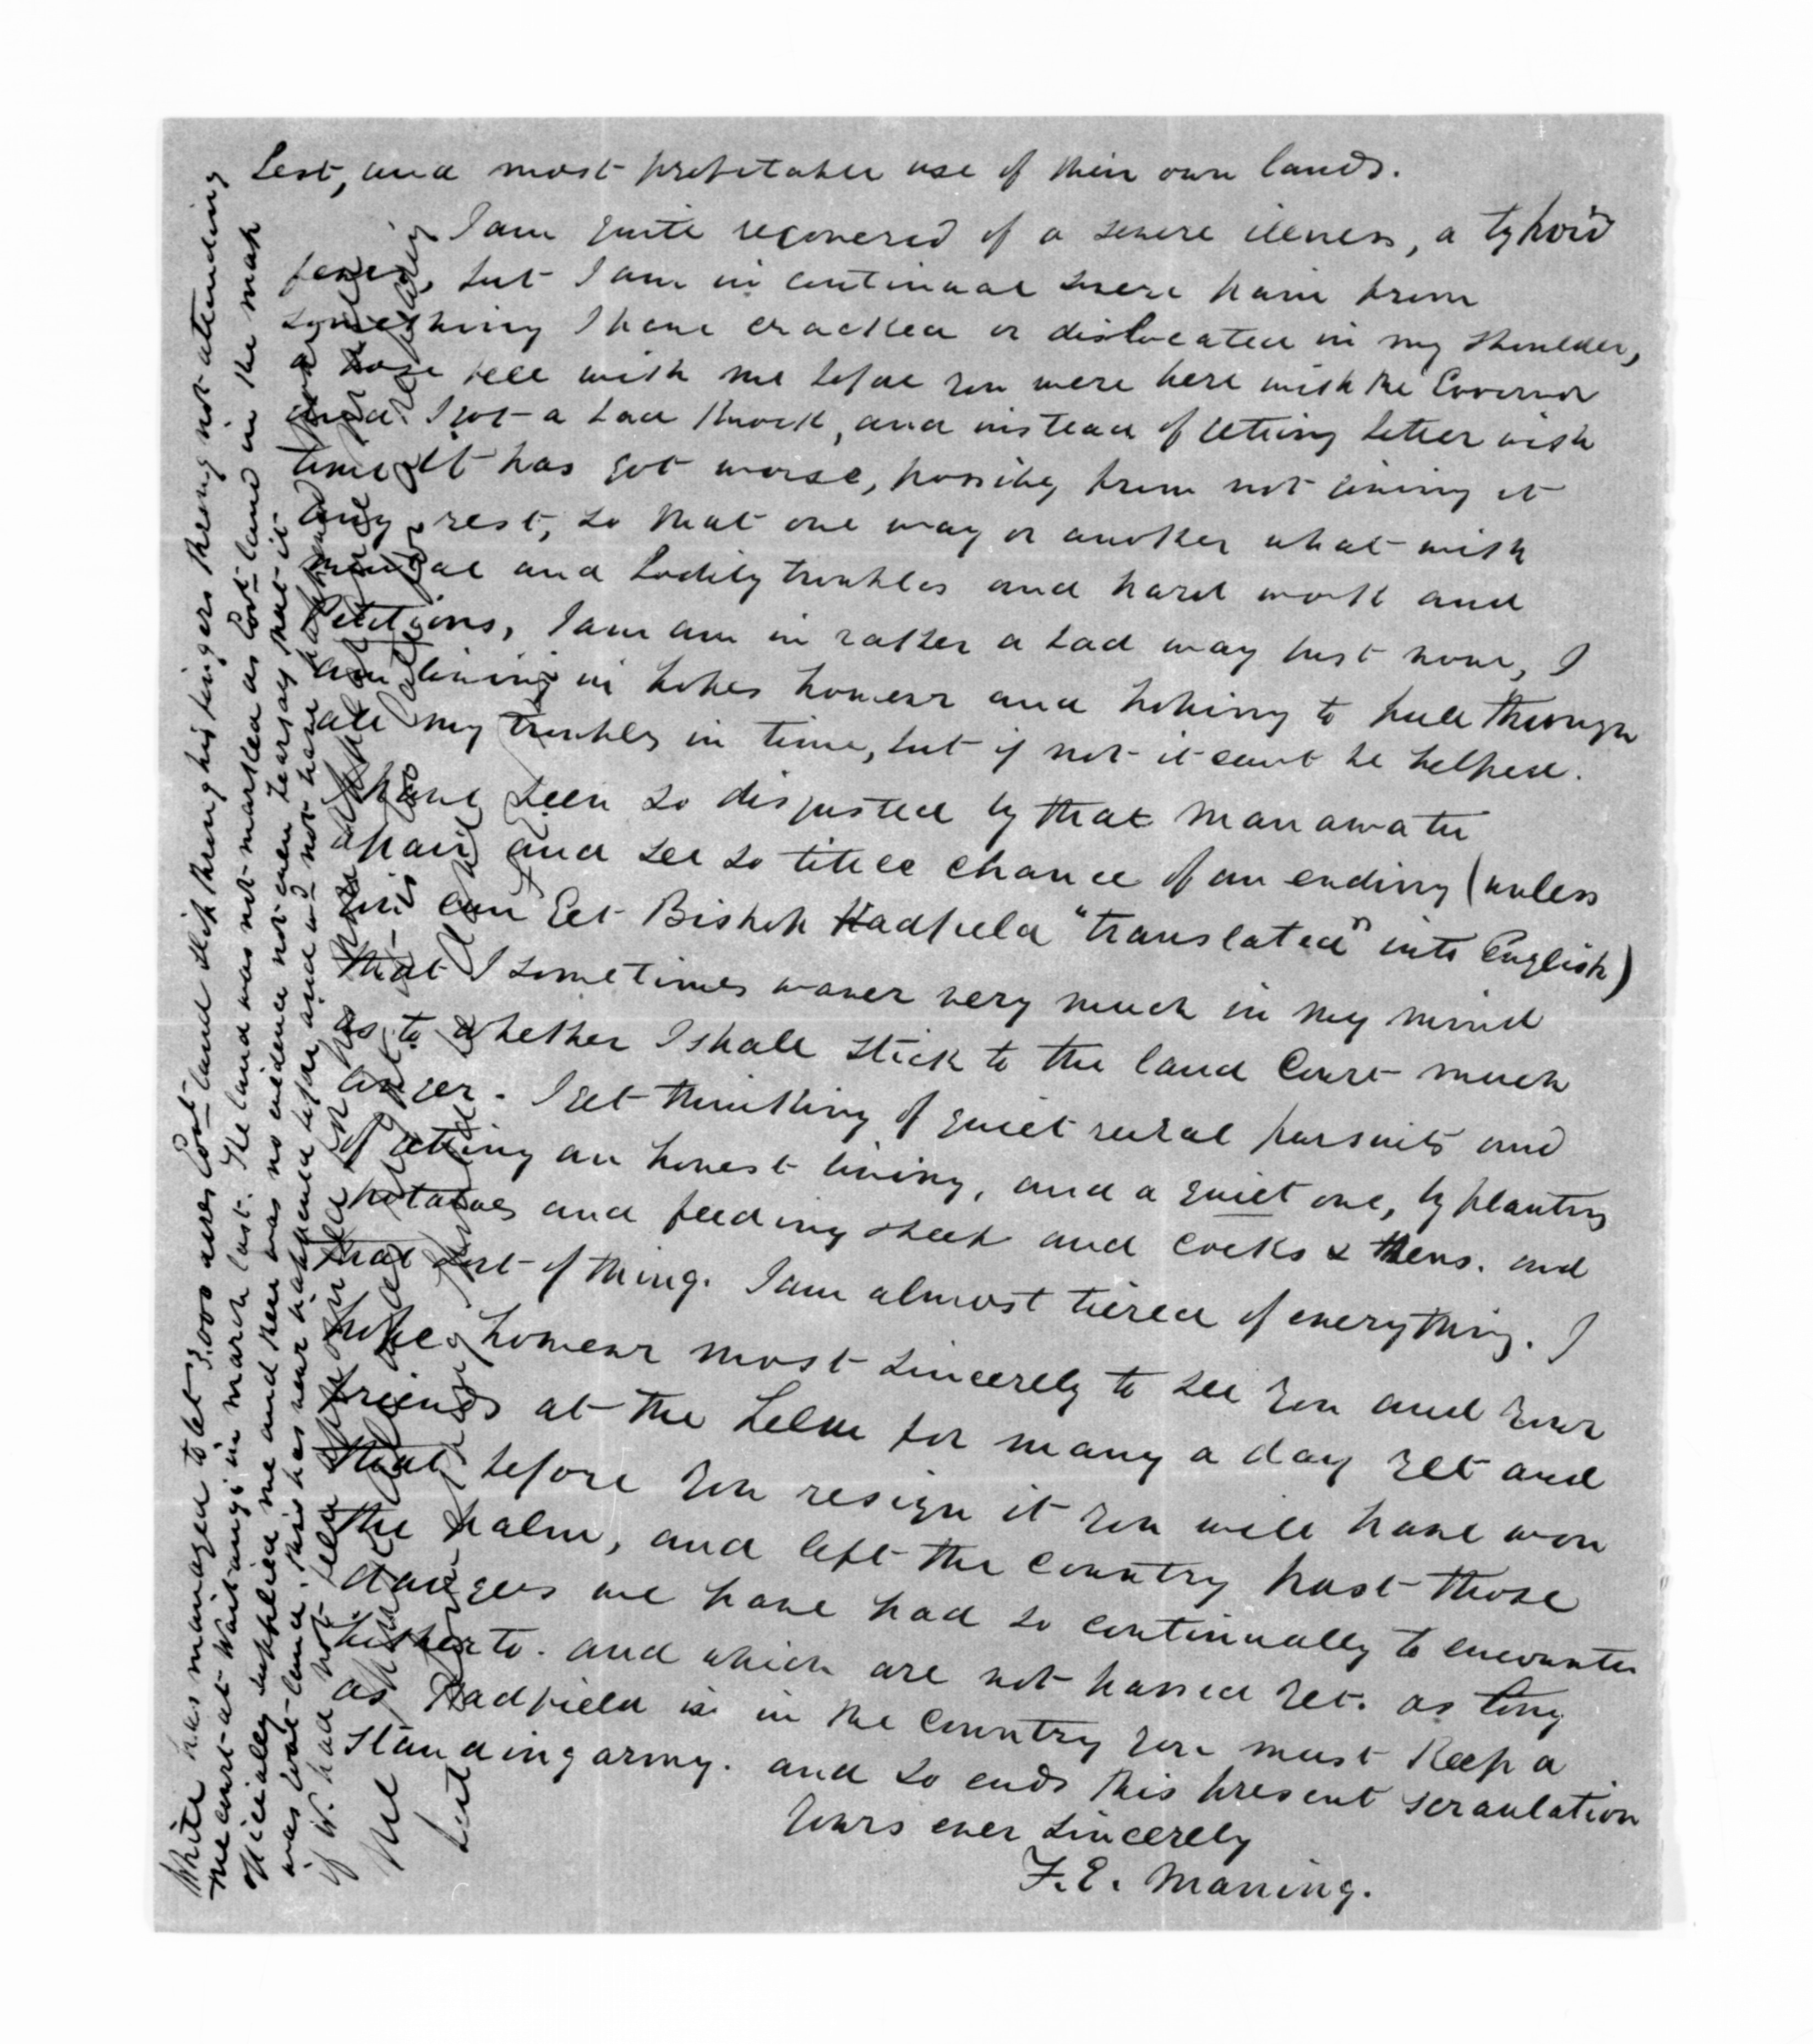 best, and most profitable use of their own lands.
I am quite recovered of a severe illness, a tyhoid
fever, but I am in continual severe pain from
something I have cracked or dislocated in my shoulder,
a horse fell with me before you were here with the Governor
and I got a bad knock, and instead of getting better with
time it has got worse, possibly from not giving it
any rest, so that one way or another what with
mental and bodily troubles and hard work and
Petitions, I am am in rather a bad way just now, I
am living in hopes however and hoping to pull through
all my troubles in time, but if not it cant be helped.
I have been so disgusted by that Manawatu
affair and see so little chance of an ending (unless
we can get Bishop Hadfield "translated" into English)
that I sometimes waver very much in my mind
as to whether I shall stick to the land Court much
longer. I get thinking of quiet rural pursuits and
of getting an honest living, and a quiet one, by planting
potatoes and feeding sheep and cocks & hens. and
that sort of thing. I am almost tiered of everything. I
hope however most sincerely to see you and your
friends at the helm for many a day yet and
that before you resign it you will have won
the palm, and left the country past those
dangers we have had so continually to encounter
hitherto. and which are not passed yet. as long
as Hadfield is in the country you must keep a
standing army. and so ends this present scraulation
Yours ever sincerely
F. E. Maning.
White has managed to let 3,000 acres Govt land slip through his fingers through not attending
the court at Waitangi in March last. The land was not marked as Govt land in the map
officially supplied me and there was no evidence not even hearsay that it
was Govt land. this has never happened before and wd not have happened
if W. had not
me
but